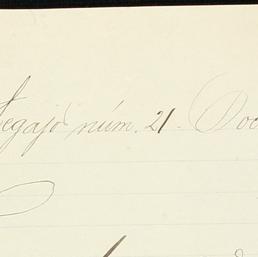 Legajo núm. 21. Doc